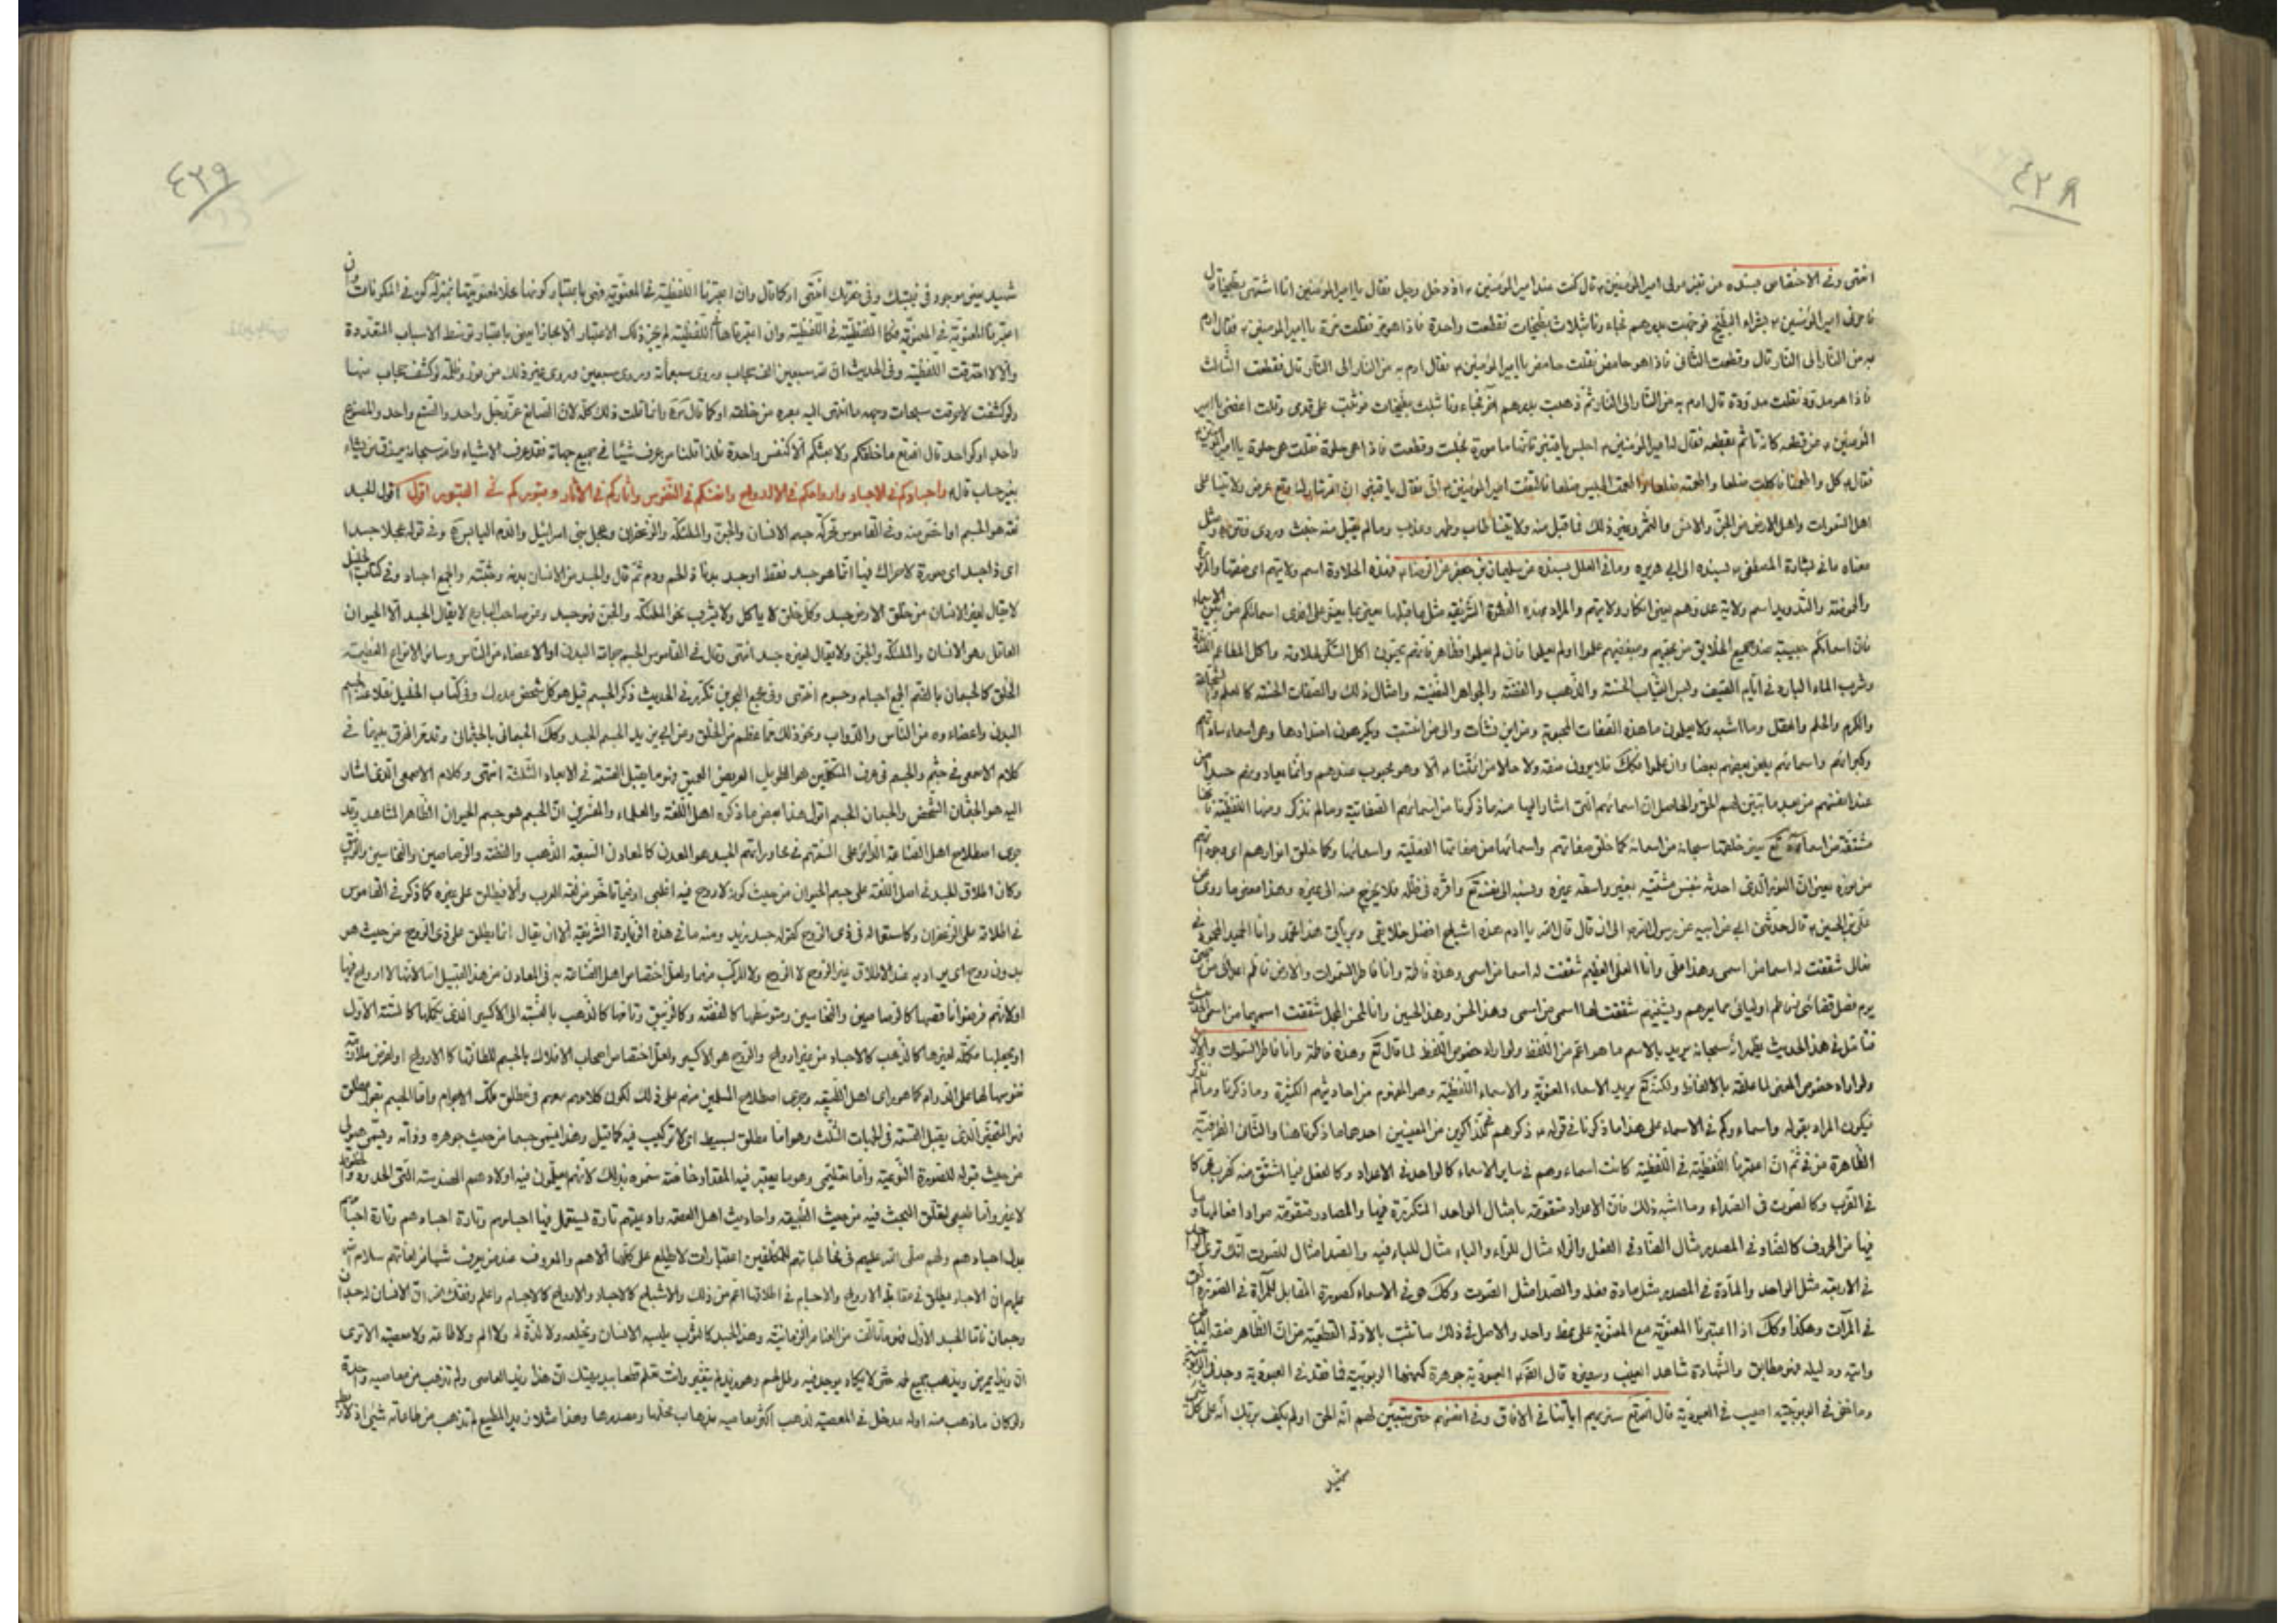 ٤٢٨
انتهى وفى الاختصاص بسنده عن قنبر مولى امير المؤمنين ع قال كنت عند امير المؤمنين ع اذ دخل رجل فقال يا امير المؤمنين انا اشتهى بطيخا قال
فامرنى امير المؤمنين ع بشراء البطيخ فوجهت بدرهم فجاءونا بثلاث بطيخات فقطعت واحدة فاذا هو مرّ فقلت مرّة يا امير المؤمنين ع فقال ارم
به من النار الى النار قال وقطعت الثانى فاذا هو حامض فقلت حامض يا امير المؤمنين ع فقال ارم به من النار الى النار قال فقطعت الثالث
فاذا هو مدوّد فقلت مدودة قال ارم به من النار الى النار ثم وجهت بدرهم آخر فجاءونا بثلث بطيخات فوثبت على قدمى وقلت اعفنى يا امير
المؤمنين ع من قطعه كانه تأثم بقطعه فقال له امير المؤمنين ع اجلس يا قنبر فانها مامورة فجلست وقطعت فاذا هى حلوة فقلت هى حلوة يا امير المؤمنين
فقال ع كل واطعمنا فاكلت ضلعا واطعمته ضلعا واطعمت الجليس ضلعا فالتفت امير المؤمنين ع الىّ فقال يا قنبر ان الله تبارك وتع عرض ولايتنا على
اهل السموات واهل الارض من الجن والانس والثمر وغير ذلك فما قبل منه ولايتنا طاب وطهر وعذب وما لم يقبل منه خبث وردى ونتن ومثل
معناه ما فى بشارة المصطفى ص بسنده الى ابى هريرة وما فى العلل بسنده عن سليمان بن جعفر عن الرضا ع فهذه الحلاوة اسم ولايتهم اى صفتها والمرارة
والحموضة والتدويد اسم ولاية عدوهم يعنى انكار ولايتهم والمراد بهذه الفقرة الشريفة مثل ما قبلها يعنى ما يعنى على احدى اسمائكم من بين الاسماء
فان اسمائكم حبيبة عند جميع الخلايق من محبهم ومبغضهم علموا او لم يعلموا فان لم يعلموا فظاهر فانهم يحبون اكل السكر لحلاوته واكل المطاعم اللذيذة
وشرب الماء البارد فى ايام الصيف ولبس الثياب الحسنة والذهب والفضة والجواهر النفيسة وامثال ذلك والصفات الحسنة كالعلم والشجاعة
والكرم والحلم والعقل وما اشبه ولا يعلمون ما هذه الصفات المحبوبة ومن اين نشأت والى من انتسب ويكرهون اضدادها وهى اسماء ساداتهم
وكبرائهم واسمائهم يلعن بعضهم بعضا وان علموا فكك فلا يرون صفة ولا حالا من ائمتنا ع الا وهو محبوب عندهم وانما يعادونهم حسدا من
عند انفسهم من بعد ما تبين لهم الحق والحاصل ان اسمائهم التى اشار اليها منه ما ذكرنا من اسمائهم الصفاتية وما لم نذكر ومنها اللفظية فانها
مشتقة من اسماء الله تع يعنى خلقها سبحانه من اسمائه كما خلق صفاتهم واسمائها من صفاتها الفعلية واسمائها وكما خلق انوارهم اى وجوداتهم
من نوره بمعنى ان النور الذى احدثه بنفس مشيته بغير واسطة غيره ونسبه الى نفسه تع واقره فى ظله فلا يخرج منه الى غيره وهذا معنى ما روى عن
على بن الحسين ع قال حدثنى ابى عن ابيه عن رسول الله ص الى ان قال قال الله يا ادم هذه اشباح افضل خلايقى وبرياتى هذا محمد وانا الحميد المحمود فى
فعالى شققت له اسما من اسمى وهذا على وانا العلى العظيم شققت له اسما من اسمى وهذه فاطمة وانا فاطر السموات والارض فاطم اعدائى من رحمتى
يوم فصل قضائى وفاطم اوليائى عما يعرهم ويشينهم شققت لها اسمى من اسمى وهذا الحسن وهذا الحسين وانا المحسن المجمل شققت اسميهما من اسمى الحديث
فتأمل فى هذا الحديث يظهر انه سبحانه يريد بالاسم ما هو اعم من اللفظ ولو اراد خصوص اللفظ لما قال تع وهذه فاطمة وانا فاطر السموات والارض
ولو اراد خصوص المعنى لما علقه بالالفاظ ولكنه تع يريد الاسماء المعنوية والاسماء اللفظية وهو المفهوم من احاديثهم الكثيرة وما ذكرنا وما لم نذكر
فيكون المراد بقوله واسماءوكم فى الاسماء على هذا ما ذكرنا فى قوله ع ذكركم فى الذاكرين من المعنيين احدهما ما ذكرنا هنا والثانى الظرفية
الظاهرة من فى ثم ان اعتبرنا اللفظية فى اللفظية كانت اسماءوهم فى ساير الاسماء كالواحد فى الاعداد وكالفعل فيما اشتق منه كضرب كما
فى الضرب وكالصوت فى الصداء وما اشبه ذلك فان الاعداد متقومة بامثال الواحد المتكررة فيها والمصادر متقومة مواد افعالها وما
فيها من الحروف كالضاد فى المصدر مثال الضاد فى الفعل والراء مثال للراء والباء مثال للباء فيه والصدا مثال للصوت انك ترى
فى الاربعة مثل الواحد والمادة فى المصدر مثل مادة فعله والصدا مثل الصوت وكك هو فى الاسماء كصورة المقابل للمرآة فى الصورة التى
فى المرآت وهكذا وكك اذا اعتبرنا المعنوية مع المعنوية على نمط واحد والاصل فى ذلك ما ثبت بالادلة القطعية من ان الظاهر صفة الباطن
وايته ودليله فهو مطابق والشهادة شاهد الغيب وسفيره قال الصّ ع العبودية جوهرة كنهها الربوبية فما فقد فى العبودية وجد فى الربوبية
وما خفى فى الربوبية اصيب فى العبودية قال الله تع سنريهم اياتنا فى الافاق وفى انفسهم حتى يتبين لهم انه الحق او لم يكف بربك انه على كل شئ
شهيد
٤٢٩
شهيد يعنى موجود فى غيبتك وفى حضرتك انتهى او كما قال وان اعتبرنا اللفظية فى المعنوية فهى باعتبار كونها عللا لمعنويتها بمنزلة كن فى المكونات وان
اعتبرنا المعنوية فى المعنوية فكاللفظية فى اللفظية وان اعتبرناها فى اللفظية لم يجز ذلك الاعتبار الا مجازا يعنى باعتبار توسط الاسباب المتعددة
والا لاحترقت اللفظية وفى الحديث ان لله سبعين الف حجاب وروى سبعمأة وروى سبعين وروى غير ذلك من نور وظلمة لو كشفت حجاب منها
ولو كشفت لاحرقت سبحات وجهه ما انتهى اليه بصره من خلقه او كما قال ص وانما قلت ذلك كله لان الصانع عز وجل واحد والصنع واحد والمصنوع
واحد او كواحد قال الله تع ما خلقكم ولا بعثكم الا كنفس واحدة فلذا قلنا من عرف شيئا فى جميع جهاته فقد عرف الاشياء والله سبحانه يرزق من يشاء
بغير حساب قال ع واجسادكم فى الاجساد وارواحكم فى الارواح وانفسكم فى النفوس واثاركم فى الآثار وقبوركم فى القبور اقول الجسد
لغة هو الجسم او اخص منه وفى القاموس محركة جسم الانسان والجن والملئكة والزعفران وعجل بنى اسرائيل والدم اليابس وفى قوله عجلا جسدا
اى ذا جسد اى صورة لا حراك فيها انما هو جسد فقط او جسد بدنا ذا لحم ودم ثم قال والجسد من الانسان بدنه وجثته والجمع اجساد وفى كتاب الخليل
لا يقال لغير الانسان من خلق الارض جسد وكل خلق لا ياكل ولا يشرب نحو الملئكة والجن فهو جسد وعن صاحب البارع لا يقال الجسد الا للحيوان
العاقل وهو الانسان والملئكة والجن ولا يقال لغيره جسد انتهى وقال فى القاموس الجسم جماعة البدن او الاعضاء من الناس وساير الانواع العظيمة
الخلق كالجسمان بالضم الجمع اجسام وجسوم انتهى وفى مجمع البحرين تكرر فى الحديث ذكر الجسم قيل هو كل شخص مدرك وفى كتاب الخليل نقلا عنه الجسم
البدن واعضاءوه من الناس والدواب ونحو ذلك مما عظم من الخلق وعن ابى زيد الجسم الجسد وكك الجسمانى بالجثمانى وقد مر الفرق بينهما فى
كلام الاصمعى فى جثم والجسم فى عرف المتكلمين هو الطويل العريض العميق فهو ما يقبل القسمة فى الابعاد الثلثة انتهى وكلام الاصمعى الذى اشار
اليه هو الجثمان الشخص والجسمان الجسم اقول هذا بعض ما ذكره اهل اللغة والعلماء والمفسرين ان الجسم هو جسم الحيوان الظاهر المشاهد وقد
جرى اصطلاح اهل الصناعة الدائر على السنتهم فى محاوراتهم الجسد هو المعدن كالمعادن السبعة الذهب والفضة والرصاصين والنحاسين والزيبق
وكان اطلاق الجسد فى اصل اللغة على جسم الحيوان من حيث كونه لا روح فيه اغلبى او فيما تاخر من لغة العرب والا فيطلق على غيره كما ذكر فى القاموس
فى اطلاقه على الزعفران وكاستعماله فى ذى الروح كقوله جسد زيد ومنه ما فى هذه الزيارة الشريفة الا ان يقال انما يطلق على ذى الروح من حيث هو
بدون روح اى يراد به عند الاطلاق غير الروح لا الروح ولا المركب منهما ولعل اختصاص اهل الصناعة به فى المعادن من هذا القبيل اما لانها لا ارواح فيها
او لانهم فرضوا ناقصها كالرصاصين والنحاسين ومتوسطها كالفضة وكالزيبق وتامها كالذهب بالنسبة الى الاكسير الذى يكملها كالستة الاول
او يجعلها مكملة لغيرها كالذهب كالاجساد من غير ارواح والروح هو الاكسير ولعل اختصاص اصحاب الافلاك بالجسم للطافتها كالارواح او لفرض ملازمة
نفوسها لها على الدوام كما هو راى اهل الطبيعة وجرى اصطلاح المسلمين منهم على ذلك لكون كلامهم معهم فى مطلق تلك الاجرام واما الجسم بقول مطلق
فهو المتحيز الذى يقبل القسمة فى الجهات الثلث وهو اما مطلق بسيط اى لا تركيب فيه كما قيل وهذا يسمى جسما من حيث جوهره وذاته ويسمى هيولى
من حيث قبوله للصورة النوعية واما تعليمى وهو ما يعتبر فيه المقدار خاصة سموه بذلك لانهم يعلمون فيه اولادهم الهندسة التى الحدود والخطوط
لا غير واما طبيعى لتعلق البحث فيه من حيث الطبيعة واحاديث اهل العصمة وادعيتهم تارة ليستعمل فيها اجسامهم وتارة اجسادهم وتارة اجسامهم
بدل اجسادهم ولهم صلى الله عليهم فى مخاطباتهم للمكلفين اعتبارات لا يطلع على كلها الا هم والمعروف عند من يعرف شيئا من لغاتهم سلام الله
عليهم ان الاجساد يطلق فى مقابلة الارواح والاجسام فى اطلاقها اعم من ذلك والاشباح كالاجساد والارواح كالاجسام واعلم وفقك الله ان الانسان له جسدان
وجسمان فاما الجسد الاول فهو ما تالف من العناصر الزمانية وهذا الجسد كالثوب يلبسه الانسان ويخلعه ولا لذة له ولا الم ولا طاعة ولا معصية الا ترى
ان زيدا يمرض ويذهب جميع لحمه حتى لا يكاد يوجد فيه رطل لحم وهو زيد لم يتغير وانت تعلم قطعا ببديهتك ان هذا زيد العاصى ولم تذهب من معاصيه واحدة
ولو كان ما ذهب منه او له مدخل فى المعصية لذهب اكثر معاصيه بذهاب محلها ومصدرها وهذا مثلا زيد المطيع لم تذهب من طاعاته شئ اذ لا ربط